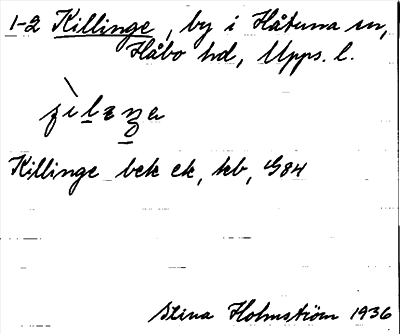 1-2 Killinge, by i Håtuna sn,
Håbo hd, Upps. l.
Killinge bek ek, kb, G84
Stina Holmström 1936